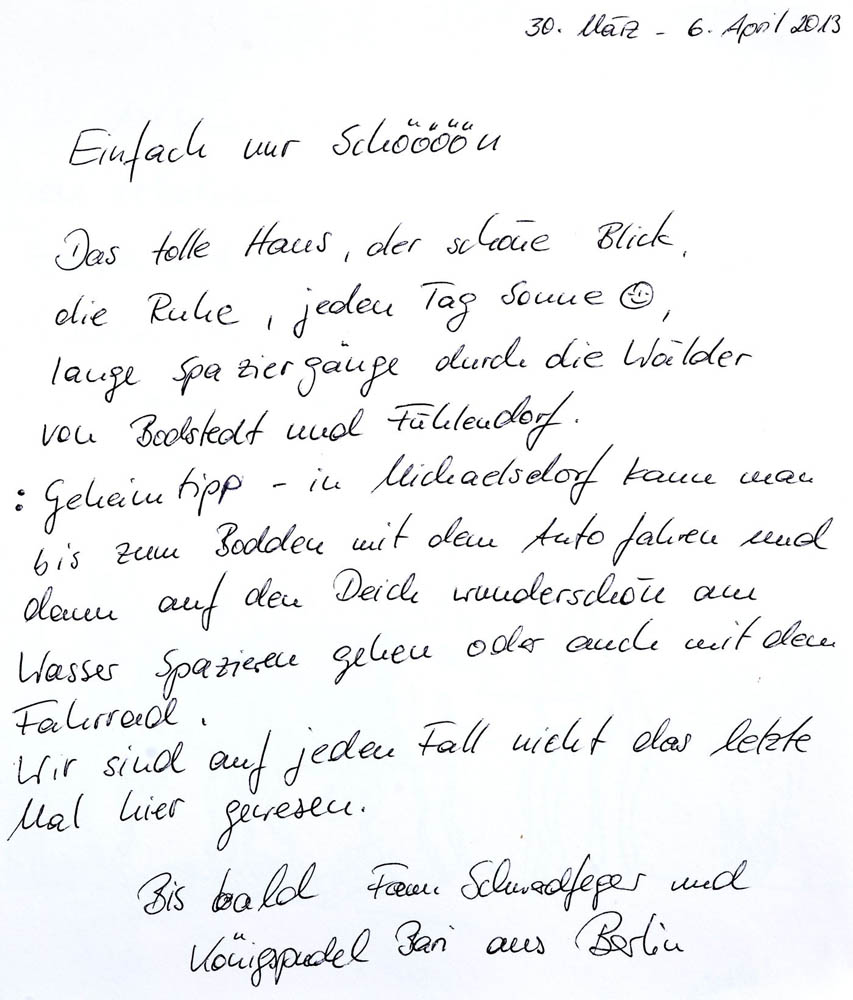 30. März - 6. April 2013
Einfach nur Schöööön
Das tolle Haus, der schöne Blick,
die Ruhe, jeden Tag Sonne ☺,
lange Spaziergänge durch die Wälder
von Bodstedt und Fuhlendorf.
: Geheimtipp - in Michaelsdorf kann man
bis zum Bodden mit dem Auto fahren und
dann auf den Deich wunderschön am
Wasser spazieren gehen oder auch mit dem
Fahrrad.
Wir sind auf jeden Fall nicht das letzte
Mal hier gewesen.
Bis bald Fam. Schwadfeger und
Königspudel Bari aus Berlin